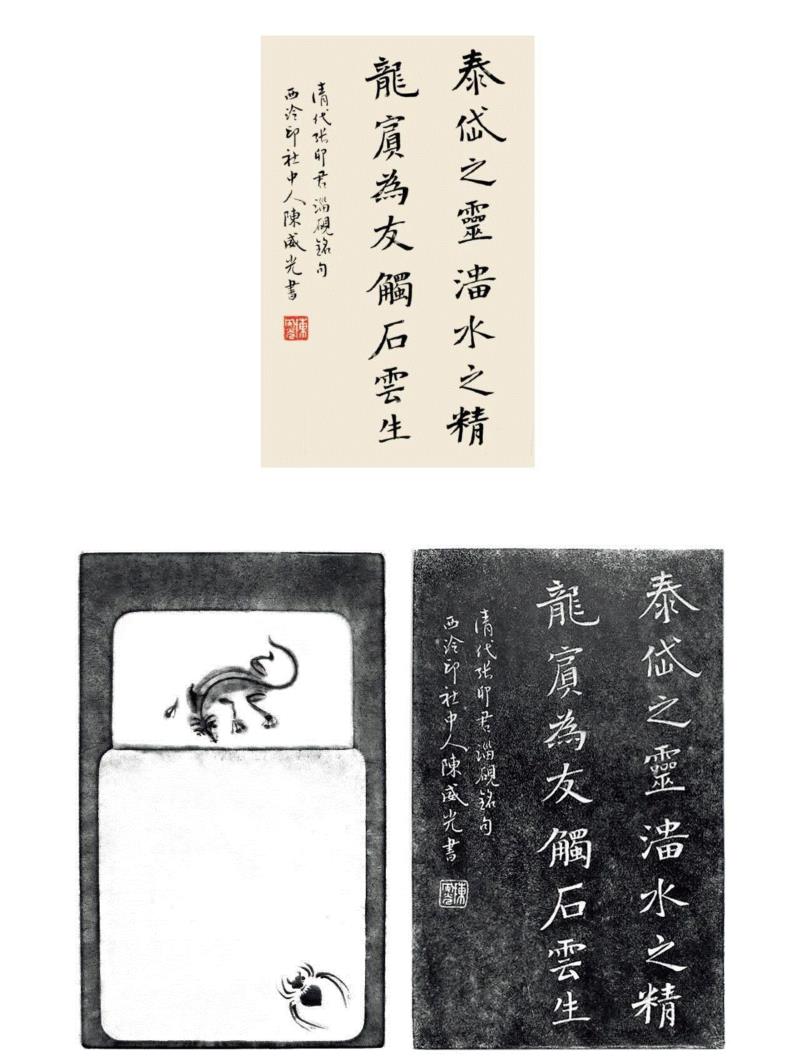 泰岱之靈湽水之精
龍賔為友觸石雲生
清代張卯君湽硯銘句
西泠印社中人陳威光書
泰岱之靈湽水之精
龍賔為友觸石雲生
清代張卯君湽硯銘句
西泠印社中人陳威光書